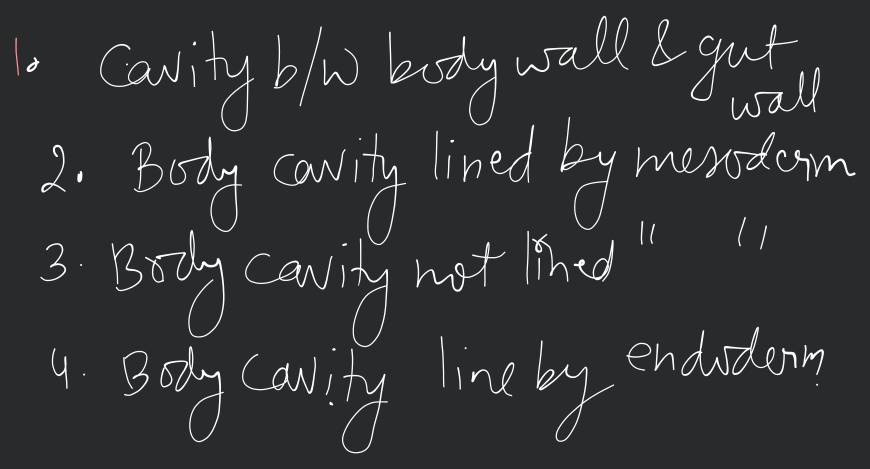 1. Cavity b/w body wall & gut
wall
2. Body cavity lined by mesoderm
3. Body cavity not lined " "
4. Body cavity line by endoderm